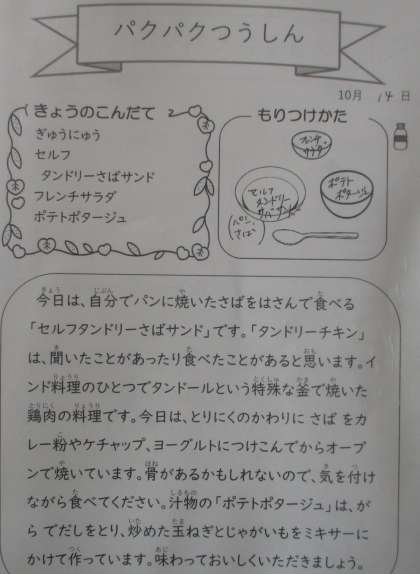 パクパクつうしん
10月 14日
きょうのこんだて
ぎゅうにゅう
セルフ
タンドリーさばサンド
フレンチサラダ
ポテトポタージュ
もりつけかた
フレンチ
サラダ
セルフ
タンドリー
サバサンド
(パン、
さば)
ポテト
ポタージュ
今日は、自分でパンに焼いたさばをはさんで食べる
「セルフタンドリーさばサンド」です。「タンドリーチキン」
は、聞いたことがあったり食べたことがあると思います。イ
ンド料理のひとつでタンドールという特殊な釜で焼いた
鶏肉の料理です。今日は、とりにくのかわりに さば をカ
レー粉やケチャップ、ヨーグルトにつけこんでからオーブ
ンで焼いています。骨があるかもしれないので、気を付け
ながら食べてください。汁物の「ポテトポタージュ」は、が
ら でだしをとり、炒めた玉ねぎとじゃがいもをミキサーに
かけて作っています。味わっておいしくいただきましょう。